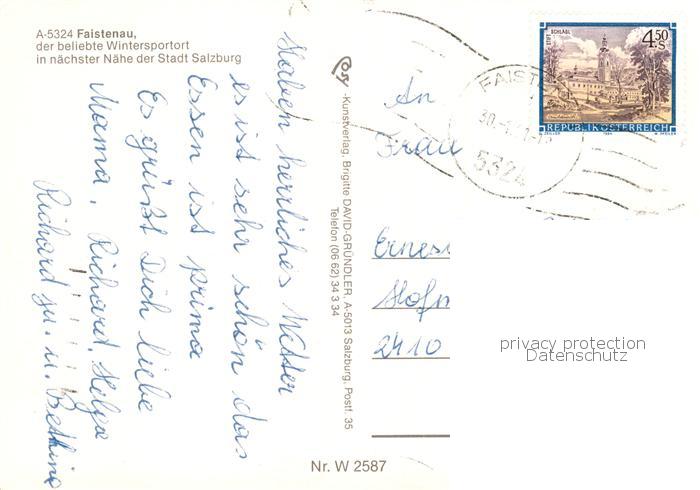 A-5324 Faistenau,
der beliebte Wintersportort
in nächster Nähe der Stadt Salzburg
Haben herrliches Wetter
es ist sehr schön das
Essen ist prima
Es grüßt Dich liebe
Mama, Richard, Helga
Richard ju. u. Bettina
Cosy
Kunstverlag, Brigitte DAVID-GRÜNDLER, A-5013 Salzburg, Postf. 35
Telefon (06 62) 34 3 34
Nr. W 2587
STIFT SCHLÄGL
4.50 S
REPUBLIK ÖSTERREICH
5324
An
Frau
2410
privacy protection
Datenschutz